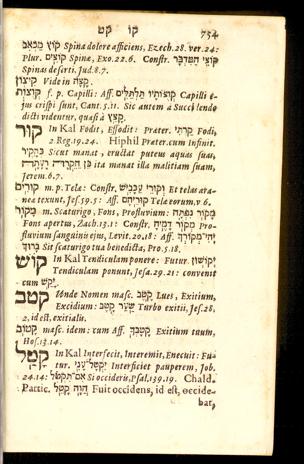 קו קט 754
קוֹץ מַכְאִב Spina dolore afficiens, Ezech.28. ver.24:
Plur. קוֹצִים Spinæ, Exo.22.6. Constr. קוֹצֵי הַמִּדְבָּר
Spinas deserti. Jud.8.7.
קִיצוֹן Vide in קָצָה
קְוֻצּוֹת f. p. Capilli: Aff. קְוֻצּוֹתָיו תַּלְתַּלִּים Capilli e-
jus crispi sunt, Cant.5.11. Sic autem à Succidendo
dicti videntur, quasi à קָצַץ
קוּר In Kal Fodit, Effodit: Præter. קַרְתִּי Fodi,
2 Reg.19.24. Hiphil Præter. cum Infinit.
כְּהָקִיר Sicut manat, eructat puteus aquas suas,
כֵּן הֵקֵרָה רָעָתָהּ ita manat illa malitiam suam,
Jerem.6.7.
קוּרִים m. p. Tela: Constr. וְקוּרֵי עַכָּבִישׁ Et telas ara-
nea texunt, Jes.59.5: Aff. קוּרֵיהֶם Tela eorum, v 6.
מָקוֹר m. Scaturigo, Fons, Profluvium: מָקוֹר נִפְתָּח
Fons apertus, Zach.13.1: Constr. מְקוֹר דָּמֶיהָ Pro-
fluvium sanguinis ejus, Levit.20.18: Aff. יְהִי־מְקוֹרְךָ
בָרוּךְ Sit scaturigo tua benedicta, Pro.5.18.
קוֹשׁ In Kal Tendiculam ponere: Futur. יְקֹשׁוּן
Tendiculam ponunt, Jesa.29.21: convenit
cum
קטב Unde Nomen masc. קֶטֶב Lues, Exitium,
Excidium: שַׂעַר קָטֶב Turbo exitii, Jes.28.
2, id est, exitialis.
masc. idem: cum Aff. קָטָבְךָ Exitium tuum,
Hos.13.14.
קָטַל In Kal Interfecit, Interemit, Enecuit: Fu-
tur. יִקְטָל־עָנִי Interficiet pauperem, Job.
24.14: אִם־תִּקְטֹל Si occideris, Psal.139.19. Chald.
Partic. הֲוָה קָטֵל Fuit occidens, id est, occide-
bat,